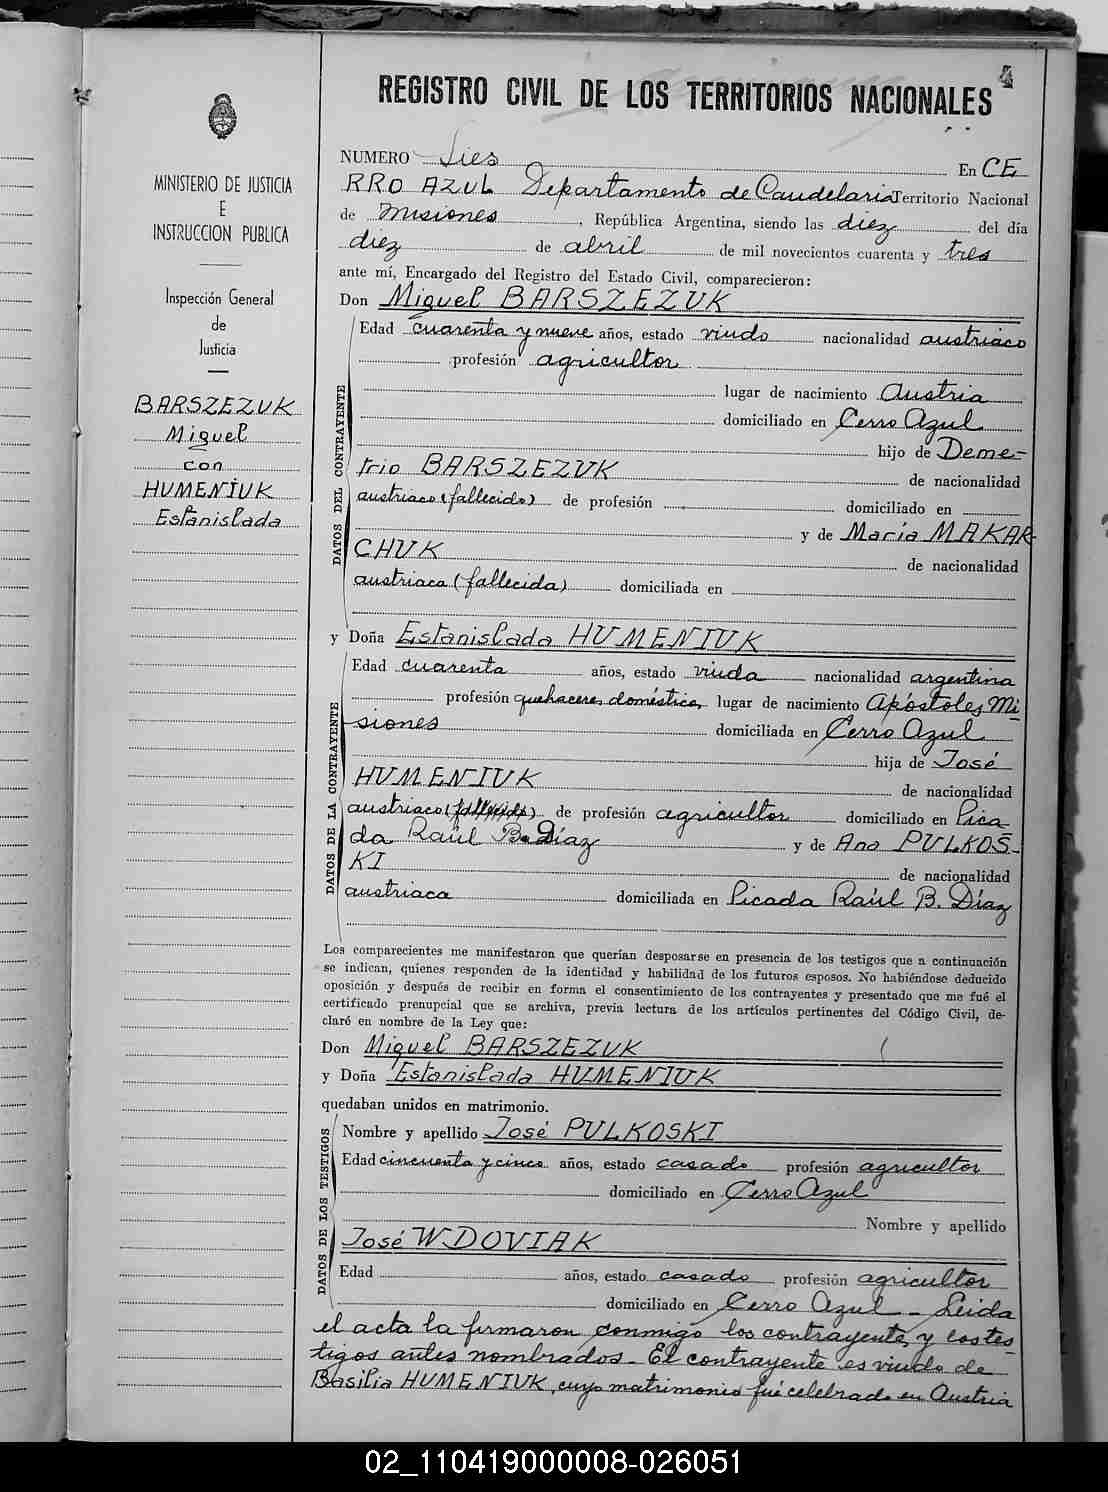 4
REGISTRO CIVIL DE LOS TERRITORIOS NACIONALES
MINISTERIO DE JUSTICIA
E
INSTRUCCION PUBLICA
Inspección General
de
Justicia
BARSZEZUK
Miguel
con
HUMENIUK
Estanislada
NUMERO En CE
RRO AZUL Departamento de Candelaria Territorio Nacional
de Misiones, República Argentina, siendo las diez del día
diez de abril de mil novecientos cuarenta y tres
ante mí, Encargado del Registro del Estado Civil, comparecieron:
Don Miguel BARSZEZUK
DATOS DEL CONTRAYENTE
Edad cuarenta y nueve años, estado viudo nacionalidad austriaco
profesión agricultor
lugar de nacimiento Austria
domiciliado en Cerro Azul
hijo de Deme-
trio BARSZEZUK de nacionalidad
austriaco (fallecido) de profesión domiciliado en
y de María MAKAR
CHUK de nacionalidad
austriaca (fallecida) domiciliada en
y Doña Estanislada HUMENIUK
DATOS DE LA CONTRAYENTE
Edad cuarenta años, estado viuda nacionalidad argentina
profesión quehaceres domésticos, lugar de nacimiento Apóstoles Mi-
siones domiciliada en Cerro Azul
hija de José
HUMENIUK de nacionalidad
austriaco (fallecido) de profesión agricultor domiciliado en Pica-
da Raúl B. Díaz y de Ana PULKOS-
KI de nacionalidad
austriaca domiciliada en Picada Raúl B. Díaz
Los comparecientes me manifestaron que querían desposarse en presencia de los testigos que a continuación
se indican, quienes responden de la identidad y habilidad de los futuros esposos. No habiéndose deducido
oposición y después de recibir en forma el consentimiento de los contrayentes y presentado que me fué el
certificado prenupcial que se archiva, previa lectura de los artículos pertinentes del Código Civil, de-
claré en nombre de la Ley que:
Don Miguel BARSZEZUK
y Doña Estanislada HUMENIUK
quedaban unidos en matrimonio.
DATOS DE LOS TESTIGOS
Nombre y apellido José PULKOSKI
Edad cincuenta y cinco años, estado casado profesión agricultor
domiciliado en Cerro Azul
Nombre y apellido
José WDOVIAK
Edad años, estado casado profesión agricultor
domiciliado en Cerro Azul - Leida
el acta la firmaron conmigo los contrayentes y los tes-
tigos antes nombrados - El contrayente es viudo de
Basilia HUMENIUK, cuyo matrimonio fué celebrado en Austria
02_110419000008-026051